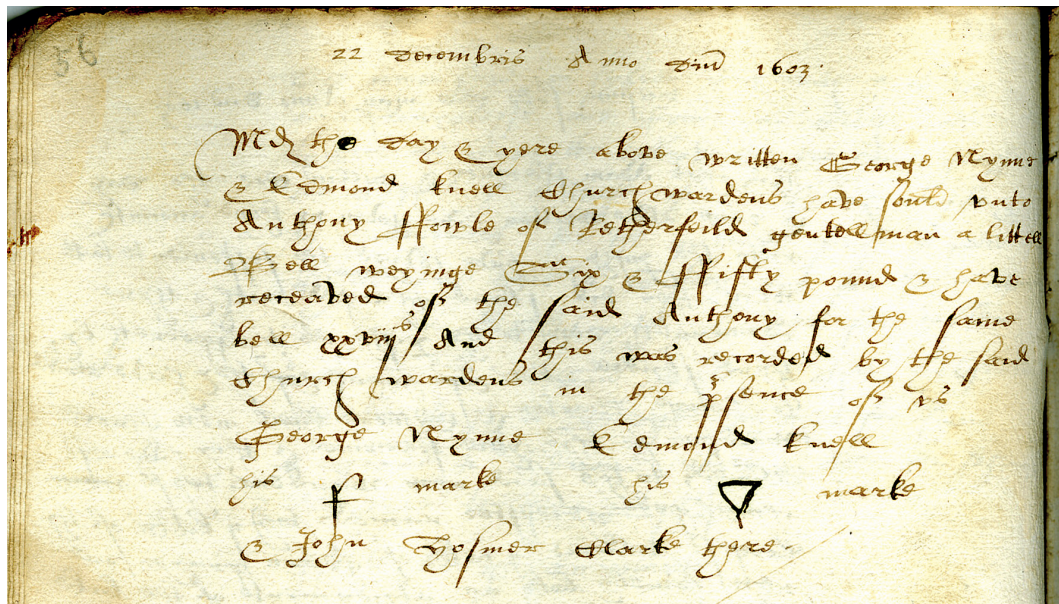 36
22 decembris Anno dm̄ 1603.
Md the day & yere above written George Nynne
& Edmond knell Churchwardens have sould vnto
Anthony ffowle of Retherfeild gentellman a littell
Bell weyinge Six & ffifty pound & have
receaved of the said Anthony for the same
bell xxviijs And this was recorded by the said
Church wardens in the p̱rsence of vs
George Nynne Edmond knell
his marke his marke
& John Hosmer Clarke there.